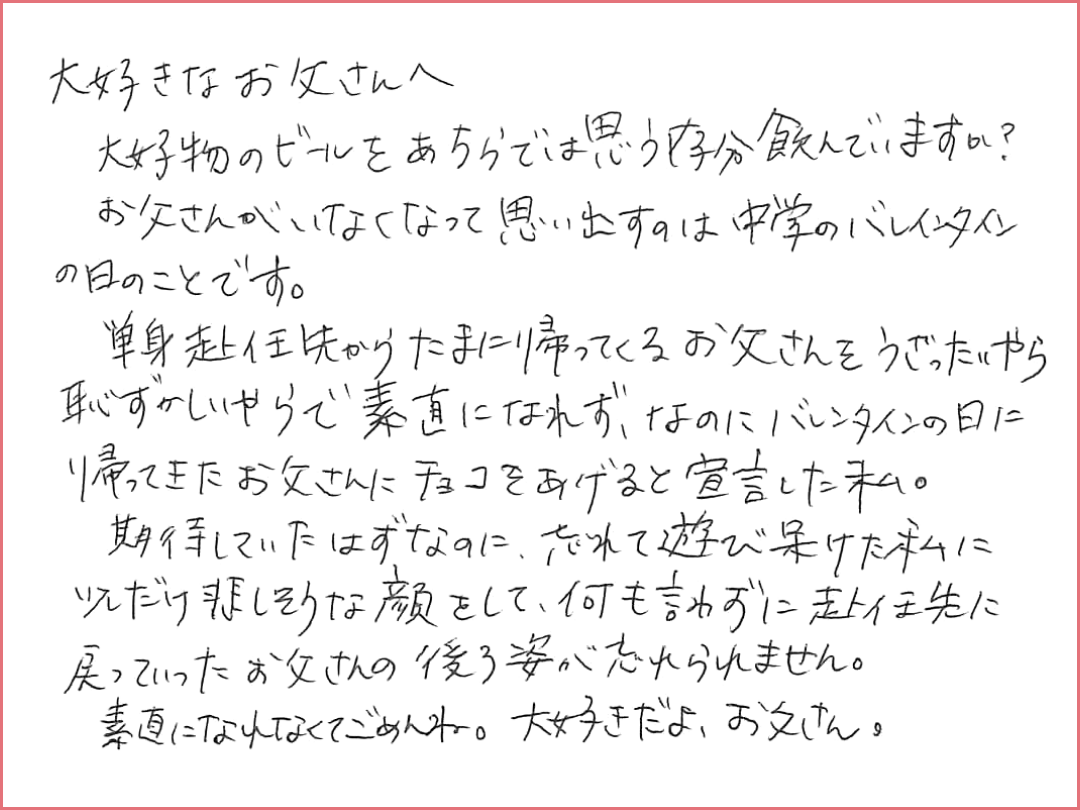 大好きなお父さんへ
大好物のビールをあちらでは思う存分飲んでいますか?
お父さんがいなくなって思い出すのは中学のバレインタイン
の日のことです。
単身赴任先からたまに帰ってくるお父さんをうざったいやら
恥ずかしいやらで素直になれず、なのにバレンタインの日に
帰ってきたお父さんにチョコをあげると宣言した私。
期待していたはずなのに、忘れて遊び呆けた私に
少しだけ悲しそうな顔をして、何も言わずに赴任先に
戻っていったお父さんの後ろ姿が忘れられません。
素直になれなくてごめんね。大好きだよ、お父さん。